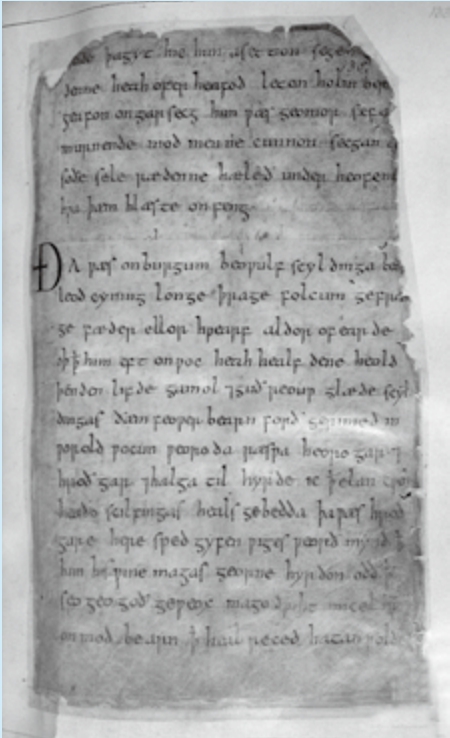 þa gyt hie him asetton segen
denne heah ofer heafod leton holm ber
geafon ongarsecg him ƿæs geomor sefa
murnende mod men ne cunnon secgan
soðe sele rædenne hæleð under heofen
hƿa þæm hlæste onfeng
ÐA ƿæs onburgum beoƿulf scyldinga
leod cyning longe þrage folcum gefræ
ge fæder ellor hƿearf aldor of earde
oþ ꝥ him eft onƿoc heah healf dene heold
þenden lifde gamol ⁊guð reouƿ glæde scyl
dingas ðæm feoƿer bearn forð gerimed in
ƿorold ƿocun ƿeoroda ræsƿa heoro gar ⁊
hroð gar ⁊halga til hyrde ic ꝥ elan
heaðo scilfingas heals gebedda þa ƿæs hroð
gare here sped gyfen ƿiges ƿeorð mynd ꝥ
him his ƿine magas georne hyrdon oðð ꝥ
seo geogoð geƿeox mago driht micel
onmod be arn ꝥ heal reced hatan ƿolde